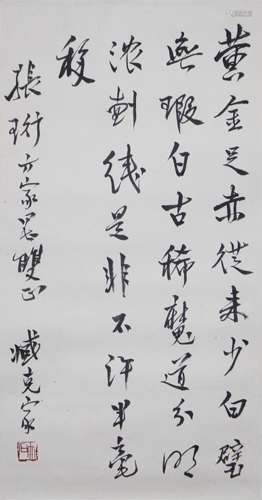 黄金足赤從来少白璧
無瑕自古稀魔道分明
浓劃线是非不许半毫
移
張珩方家雙正 臧克家